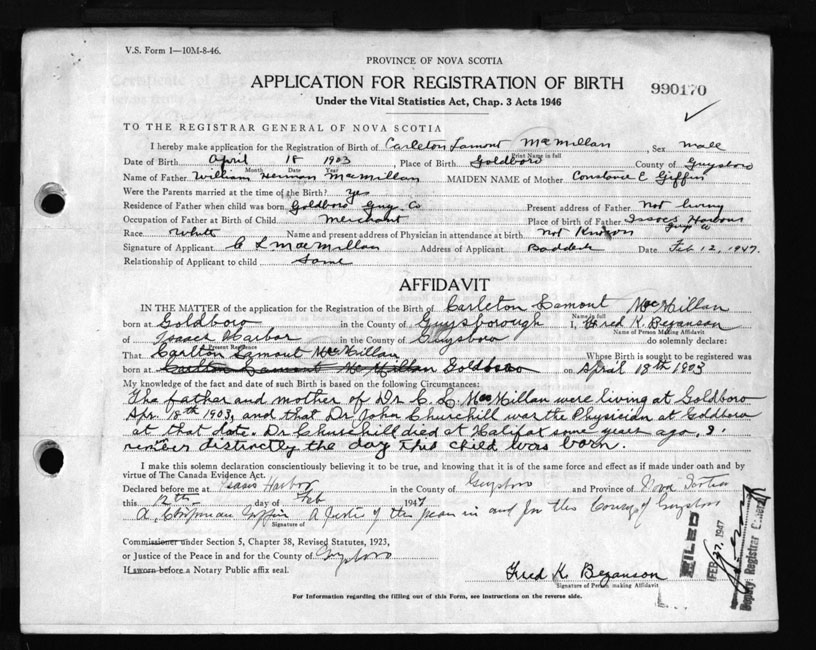 V.S. Form 1—10M-8-46.
PROVINCE OF NOVA SCOTIA
APPLICATION FOR REGISTRATION OF BIRTH
990170
Under the Vital Statistics Act, Chap. 3 Acts 1946
TO THE REGISTRAR GENERAL OF NOVA SCOTIA
I hereby make application for the Registration of Birth of Carleton Lamont MacMillan, Sex male
Print Name in full
Date of Birth April 18 1903, Place of Birth Goldboro County of Guysboro
Month Date Year
Name of Father William Herman MacMillan MAIDEN NAME of Mother Constance C Giffin
Were the Parents married at the time of the Birth? Yes
Residence of Father when child was born Goldboro Guy. Co Present address of Father Not living
Occupation of Father at Birth of Child Merchant Place of birth of Father Isaacs Harbour
Guy Co
Race White Name and present address of Physician in attendance at birth not Known
Signature of Applicant C L MacMillan Address of Applicant Baddeck Date Feb 12, 1947.
Relationship of Applicant to child Same
AFFIDAVIT
IN THE MATTER of the application for the Registration of the Birth of Carleton Lamont MacMillan
Name in full
born at Goldboro in the County of Guysborough I, Fred K. Bezanson
Name of Person Making Affidavit
of Isaacs Harbor in the County of Guysboro do solemnly declare:
Present Residence
That Carlton Lamont MacMillan, Whose Birth is sought to be registered was
born at Carlton Lamont MacMillan Goldboro on April 18th 1903
My knowledge of the fact and date of such Birth is based on the following Circumstances:
The father and mother of Dr C. L. MacMillan were living at Goldboro
Apr. 18th 1903, and that Dr John Churchill was the Physician at Goldboro
at that date. Dr Churchill died at Halifax some years ago, I
distinctly the day this child was born.
I make this solemn declaration conscientiously believing it to be true, and knowing that it is of the same force and effect as if made under oath and by
virtue of The Canada Evidence Act.
Declared before me at Isaacs Harbor in the County of Guysboro and Province of Nova Scotia
this 12th day of Feb 1947
A. Chipman Giffin A Justice of the peace in and for the County of Guysboro
Signature of
Commissioner under Section 5, Chapter 38, Revised Statutes, 1923,
or Justice of the Peace in and for the County of Guysboro
If sworn before a Notary Public affix seal.
Fred K Bezanson
Signature of Person making Affidavit
FILED
FEB 27. 1947
Deputy Registrar General
For Information regarding the filling out of this Form, see instructions on the reverse side.